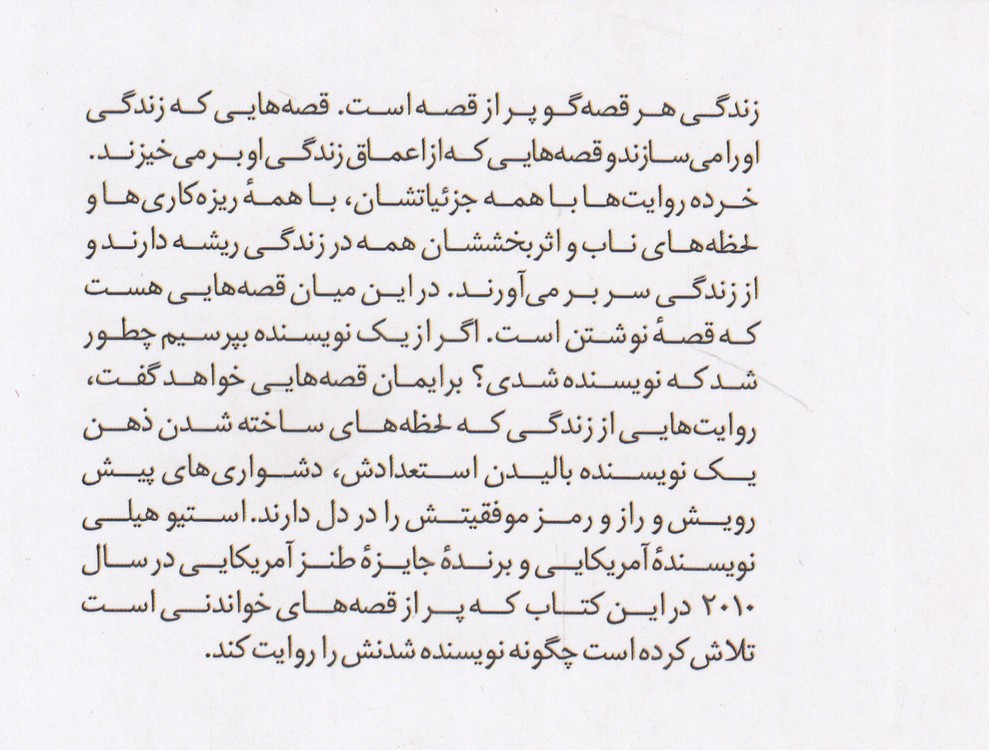 زندگی هر قصه‌گو پر از قصه است. قصه‌هایی که زندگی
او را می‌سازند و قصه‌هایی که از اعماق زندگی او بر می‌خیزند.
خرده روایت‌ها با همه جزئیاتشان، با همهٔ ریزه‌کاری‌ها و
لحظه‌های ناب و اثربخششان همه در زندگی ریشه دارند و
از زندگی سر بر می‌آورند. در این میان قصه‌هایی هست
که قصهٔ نوشتن است. اگر از یک نویسنده بپرسیم چطور
شد که نویسنده شدی؟ برایمان قصه‌هایی خواهد گفت،
روایت‌هایی از زندگی که لحظه‌های ساخته شدن ذهن
یک نویسنده بالیدن استعدادش، دشواری‌های پیش
رویش و راز و رمز موفقیتش را در دل دارند. استیو هیلی
نویسندهٔ آمریکایی و برندهٔ جایزهٔ طنز آمریکایی در سال
۲۰۱۰ در این کتاب که پر از قصه‌های خواندنی است
تلاش کرده است چگونه نویسنده شدنش را روایت کند.